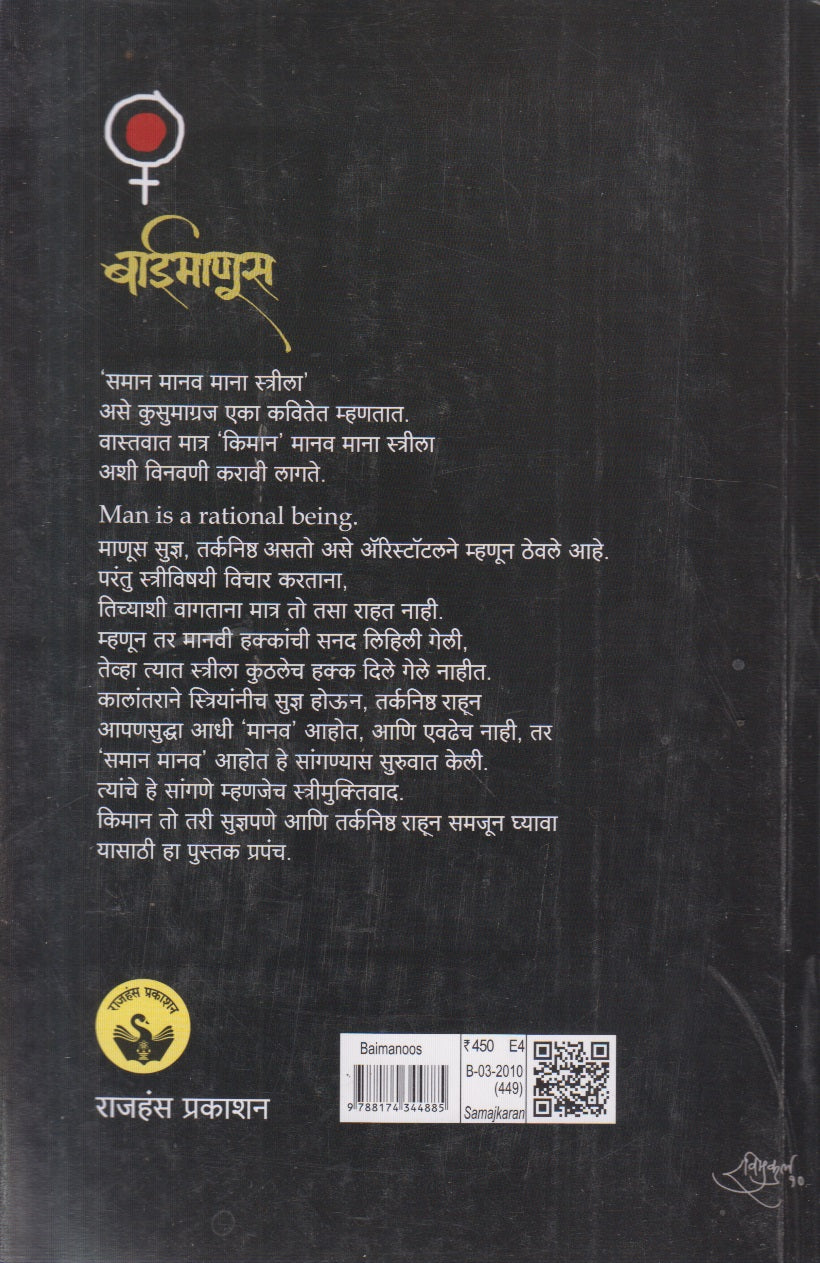 बाईमाणूस
‘समान मानव माना स्त्रीला’
असे कुसुमाग्रज एका कवितेत म्हणतात.
वास्तवात मात्र ‘किमान’ मानव माना स्त्रीला
अशी विनवणी करावी लागते.
Man is a rational being.
माणूस सुज्ञ, तर्कनिष्ठ असतो असे ॲरिस्टॉटलने म्हणून ठेवले आहे.
परंतु स्त्रीविषयी विचार करताना,
तिच्याशी वागताना मात्र तो तसा राहत नाही.
म्हणून तर मानवी हक्कांची सनद लिहिली गेली,
तेव्हा त्यात स्त्रीला कुठलेच हक्क दिले गेले नाहीत.
कालांतराने स्त्रियांनीच सुज्ञ होऊन, तर्कनिष्ठ राहून
आपणसुद्धा आधी ‘मानव’ आहोत, आणि एवढेच नाही, तर
‘समान मानव’ आहोत हे सांगण्यास सुरुवात केली.
त्यांचे हे सांगणे म्हणजेच स्त्रीमुक्तिवाद.
किमान तो तरी सुज्ञपणे आणि तर्कनिष्ठ राहून समजून घ्यावा
यासाठी हा पुस्तक प्रपंच.
राजहंस प्रकाशन
राजहंस प्रकाशन
Baimanoos
9 788174 344885
₹450 E4
B-03-2010
(449)
Samajkaran
रविमुकुल
१०